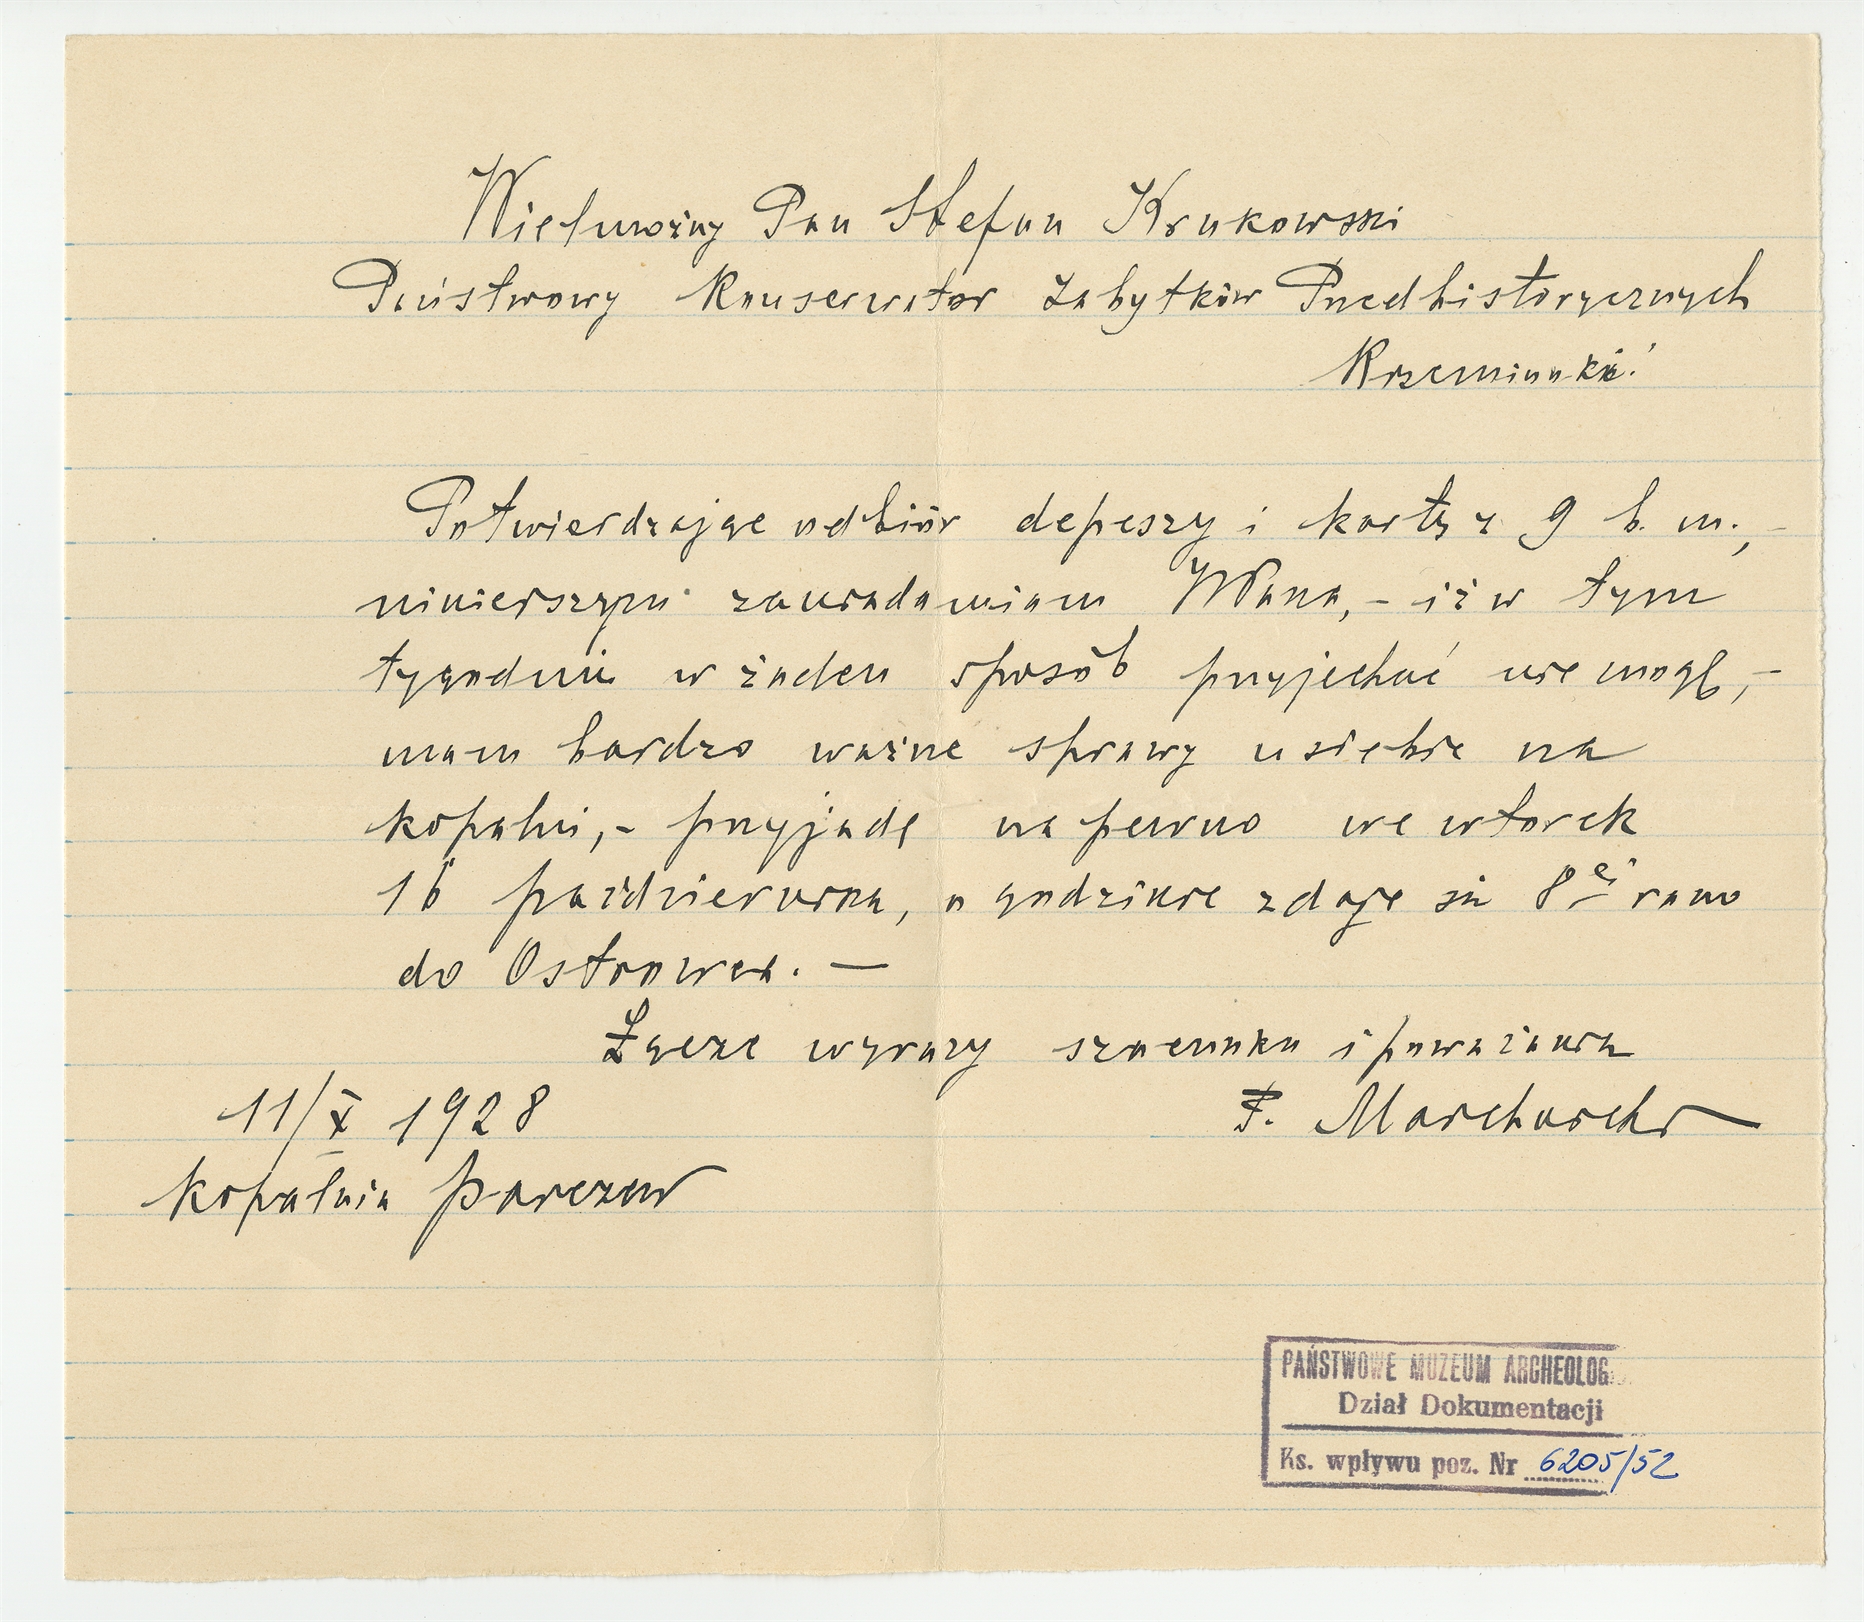 Wielmożny Pan Stefan Krukowski
Państwowy Konserwator Zabytków Przedhistorycznych
Krzemionki!
Potwierdzając odbiór depeszy i karty z 9 b. m., -
niniejszym zawiadamiam WPana, - iż w tym
tygodniu w żaden sposób przyjechać nie mogę, -
mam bardzo ważne sprawy u siebie na
kopalni, - przyjadę na pewno we wtorek
16 października, o godzinie zdaje się 8ej rano
do Ostrowca. —
Łączę wyrazy szacunku i poważania
11/X 1928
Kopalnia Parczew
PAŃSTWOWE MUZEUM ARCHEOLOG
Dział Dokumentacji
Ks. wpływu poz. Nr 6205/52